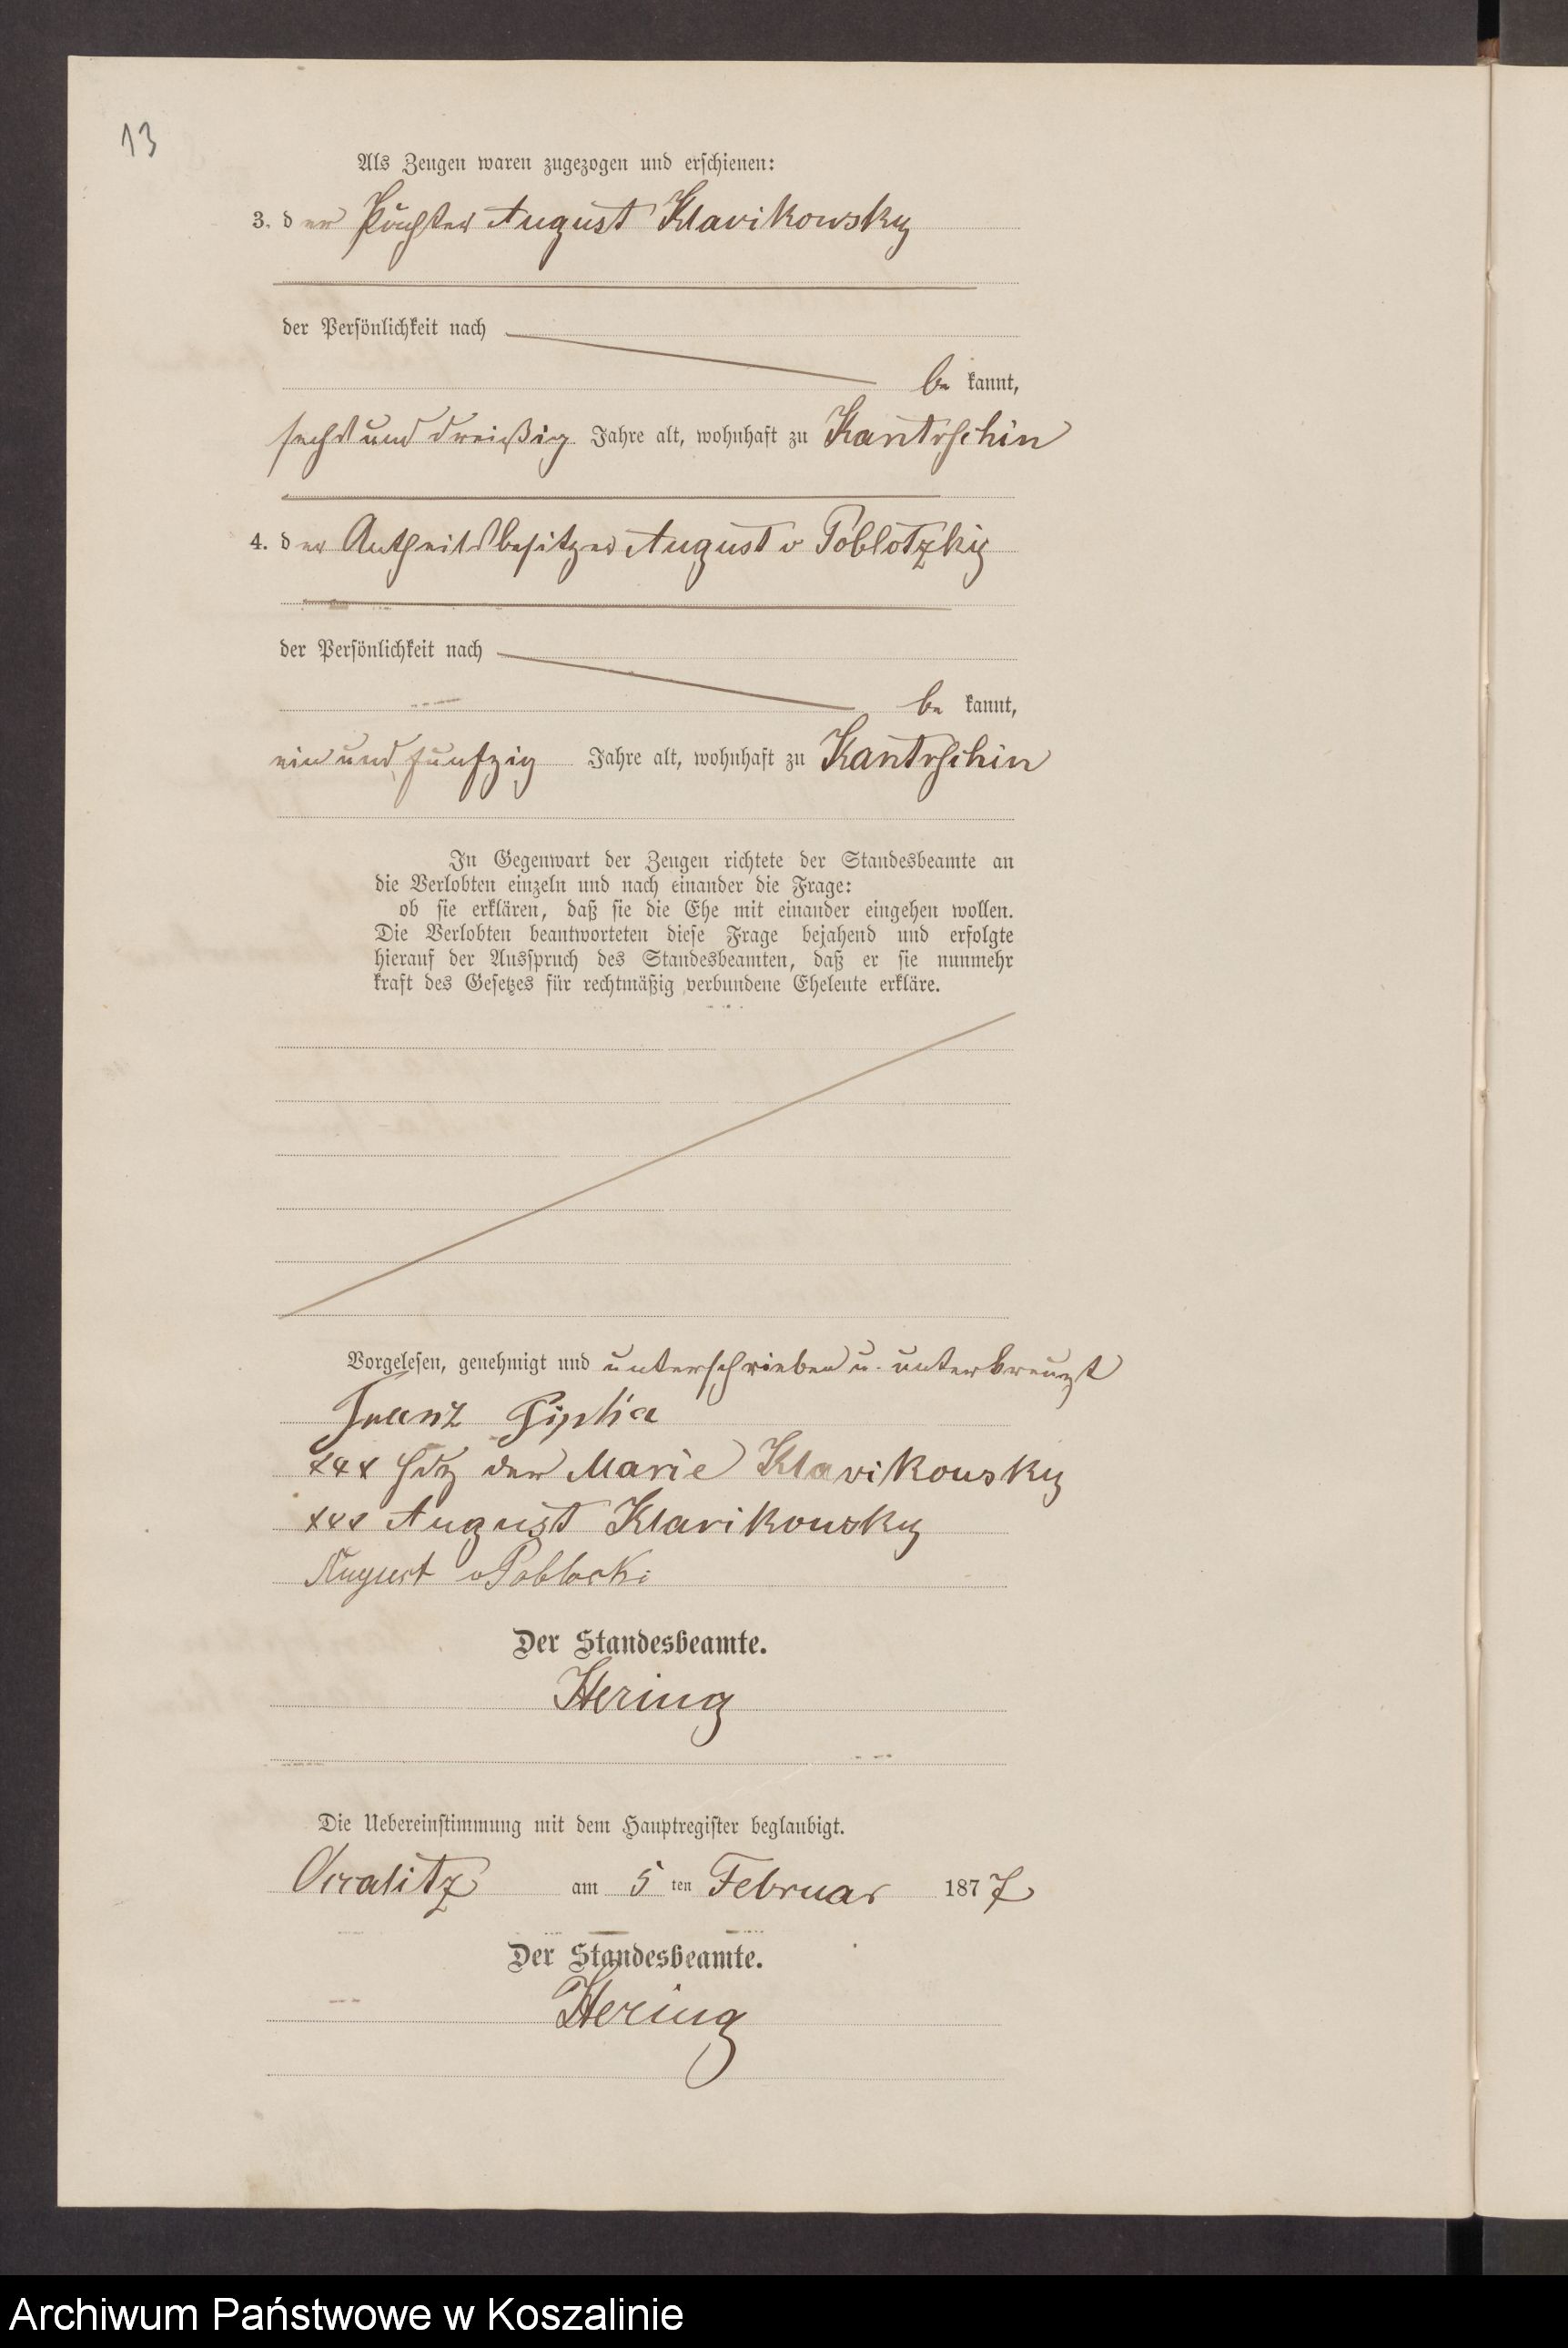 13
Als Zeugen waren zugezogen und erschienen:
3. der Pächter August Klavikowsky
der Persönlichkeit nach
be kannt,
sechs und dreißig Jahre alt, wohnhaft zu Kantrschin
4. der Antheilsbesitzer August v Poblotzky
der Persönlichkeit nach
be kannt,
ein und funfzig Jahre alt, wohnhaft zu Kantrschin
In Gegenwart der Zeugen richtete der Standesbeamte an
die Verlobten einzeln und nach einander die Frage:
ob sie erklären, daß sie die Ehe mit einander eingehen wollen.
Die Verlobten beantworteten diese Frage bejahend und erfolgte
hierauf der Ausspruch des Standesbeamten, daß er sie nunmehr
kraft des Gesetzes für rechtmäßig verbundene Eheleute erkläre.
Vorgelesen, genehmigt und unterschrieben u. unterkreuzt
Franz
xxx Hdz der Marie Klavikowsky
xxx August Klavikowsky
August v Poblocki
Der Standesbeamte.
Hering
Die Uebereinstimmung mit dem Hauptregister beglaubigt.
am 5 ten Februar 1877
Der Standesbeamte.
Hering
Archiwum Państwowe w Koszalinie